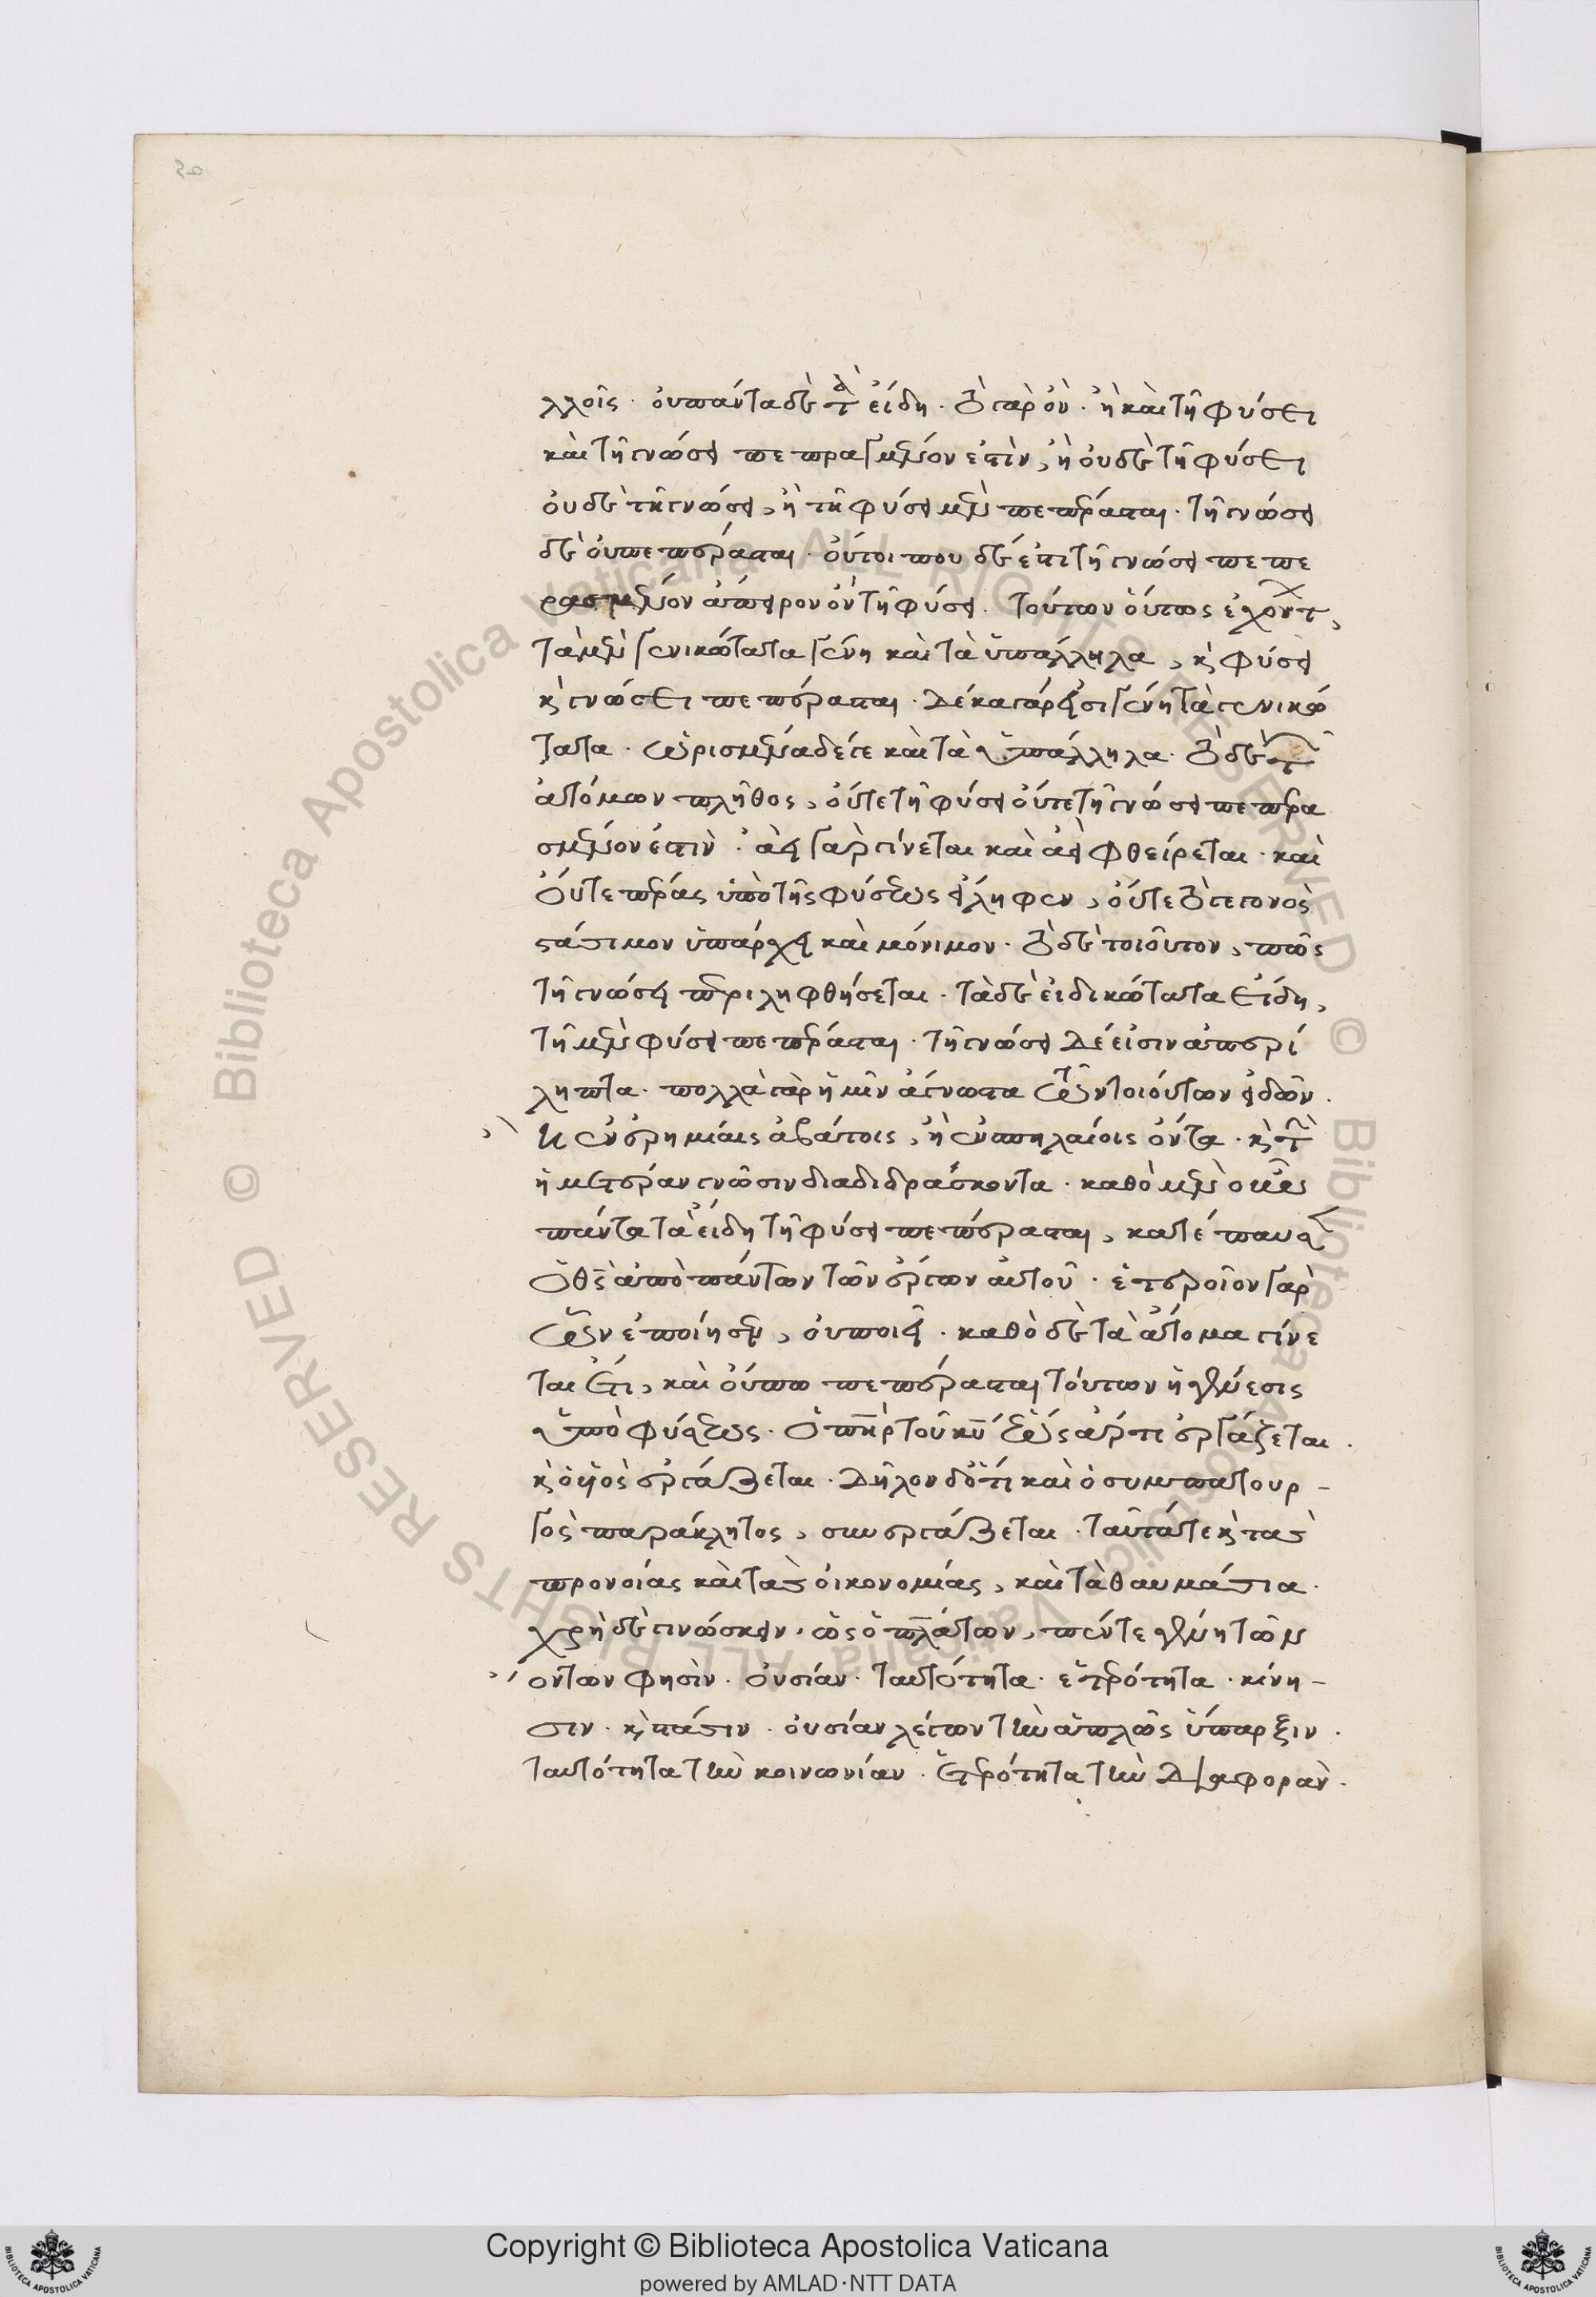 λλοῖς· οὐ πάντα δὲ τὰ εἴδη· τὸ γὰρ ὂν· ἢ καὶ τῇ φύσει
καὶ τῇ γνώσει πεπερασμένον ἐστὶν, ἢ οὐδὲ τῇ φύσει
οὐδὲ τῇ γνώσει, ἢ τῇ φύσει μὲν πεπέρασται· τῇ γνώσει
δὲ οὐ πεπέρασται· οὔτοι που δέ ἐστι τῇ γνώσει πεπε
ρασμένον ἄπειρον ὂν τῇ φύσει. τούτων οὕτως ἐχόντ,
τὰ μὲν γενικώτατα γένη καὶ τὰ ὑπάλληλα, κ φύσει
κ γνώσει πεπέρασται· δέκα γάρ εἰσι γένη τὰ γενικώ
τατα· ὡρισμένα δέ γε καὶ τὰ ὑπάλληλα· τὸ δὲ τ
ἀτόμων πλῆθος, οὔτε τῇ φύσει οὔτε τῇ γνώσει πεπερα
σμένον ἐστὶν· ἀεὶ γὰρ γίνεται καὶ ἀεὶ φθείρεται· καὶ
οὔτε πέρας ὑπὸ τῆς φύσεως εἴληφεν, οὔτε τὸ γεγονὸς
στάσιμον ὑπάρχει καὶ μόνιμον· τὸ δὲ τοιοῦτον, πῶς
τῇ γνώσει περιληφθήσεται· τὰ δὲ εἰδικώτατα εἴδη,
τῇ μὲν φύσει πεπέρασται· τῇ γνώσει δέ εἰσιν ἀπερί
ληπτα· πολλὰ γὰρ ἡμῖν ἄγνωστα τῶν τοιούτων εἰδῶν.
ἢ ἐν ἐρημίαις ἀβάτοις, ἢ ἐν σπηλαίοις ὄντα· κ τ
ἡμετέραν γνῶσιν διαδιδράσκοντα· καθὸ μὲν
πάντα τὰ εἴδη τῇ φύσει πεπέρασται, κατέπαυσ
ὁ θς ἀπὸ πάντων τῶν ἔργων αὐτοῦ· ἑτεροῖον γὰρ
ὧν ἐποίησεν, οὐ ποιεῖ· καθὸ δὲ τὰ ἄτομα γίνε
ται ἔτι, καὶ οὔπω πεπέρασται τούτων ἡ γένεσις
ὑπὸ φύσεως· ὁ πηρ τοῦ κυ ἕως ἄρτι ἐργάζεται.
κ ὁ υἱὸς ἐργάζεται· δηλονδότι καὶ ὁ συμπαντουρ-
γὸς παράκλητος, συνεργάζεται· ταῦτά τε κ τὰς
προνοίας καὶ τὰς οἰκονομίας, καὶ τὰ θαυμάσια·
χρὴ δὲ γινώσκειν· ὡς ὁ πλάτων, πέντε γένη τῶν
ὄντων φησὶν· οὐσίαν· ταυτότητα· ἑτερότητα· κίνη-
σιν· κ στάσιν· οὐσίαν λέγων τὴν ἁπλῶς ὕπαρξιν·
ταυτότητα τὴν κοινωνίαν· ἑτερότητα τὴν διαφορὰν.
Copyright © Biblioteca Apostolica Vaticana
powered by AMLAD·NTT DATA